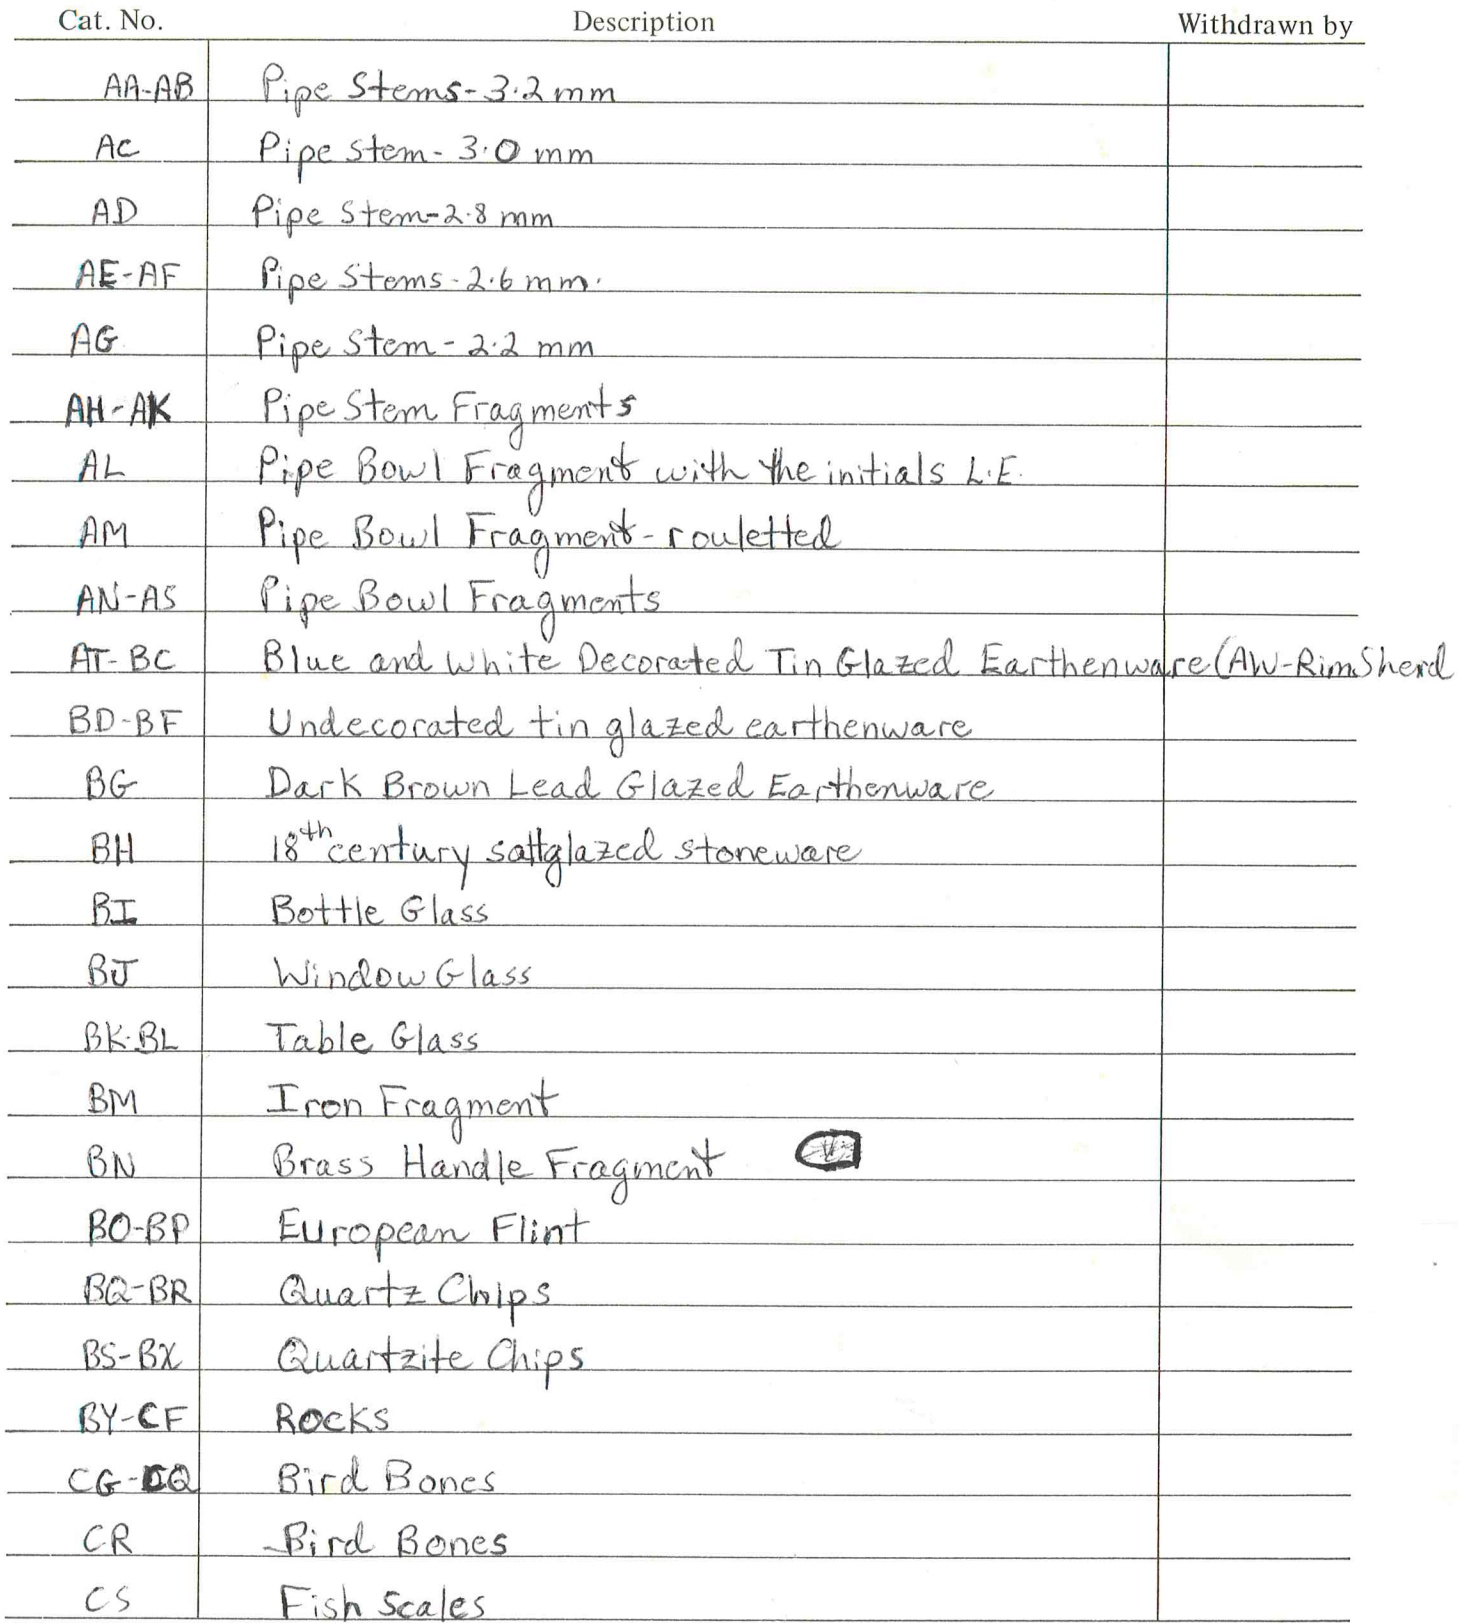 Cat. No. Description Withdrawn by
AA-AB Pipe Stems- 3.2 mm
AC Pipe Stem- 3.0 mm
AD Pipe Stem-2.8 mm
AE-AF Pipe Stems-2.6 mm.
AG Pipe Stem- 2.2 mm
AH-AK Pipe Stem Fragments
AL Pipe Bowl Fragment with the initials L.E.
AM Pipe Bowl Fragment-rouletted
AN-AS Pipe Bowl Fragments
AT-BC Blue and White Decorated Tin Glazed Earthenware (AW-Rim Sherd
BD-BF Undecorated tin glazed earthenware
BG Dark Brown Lead Glazed Earthenware
BH 18th century saltglazed stoneware
BI Bottle Glass
BJ Window Glass
BK-BL Table Glass
BM Iron Fragment
BN Brass Handle Fragment
BO-BP European Flint
BQ-BR Quartz Chips
BS-BX Quartzite Chips
BY-CF Rocks
CG-CQ Bird Bones
CR Bird Bones
CS Fish Scales